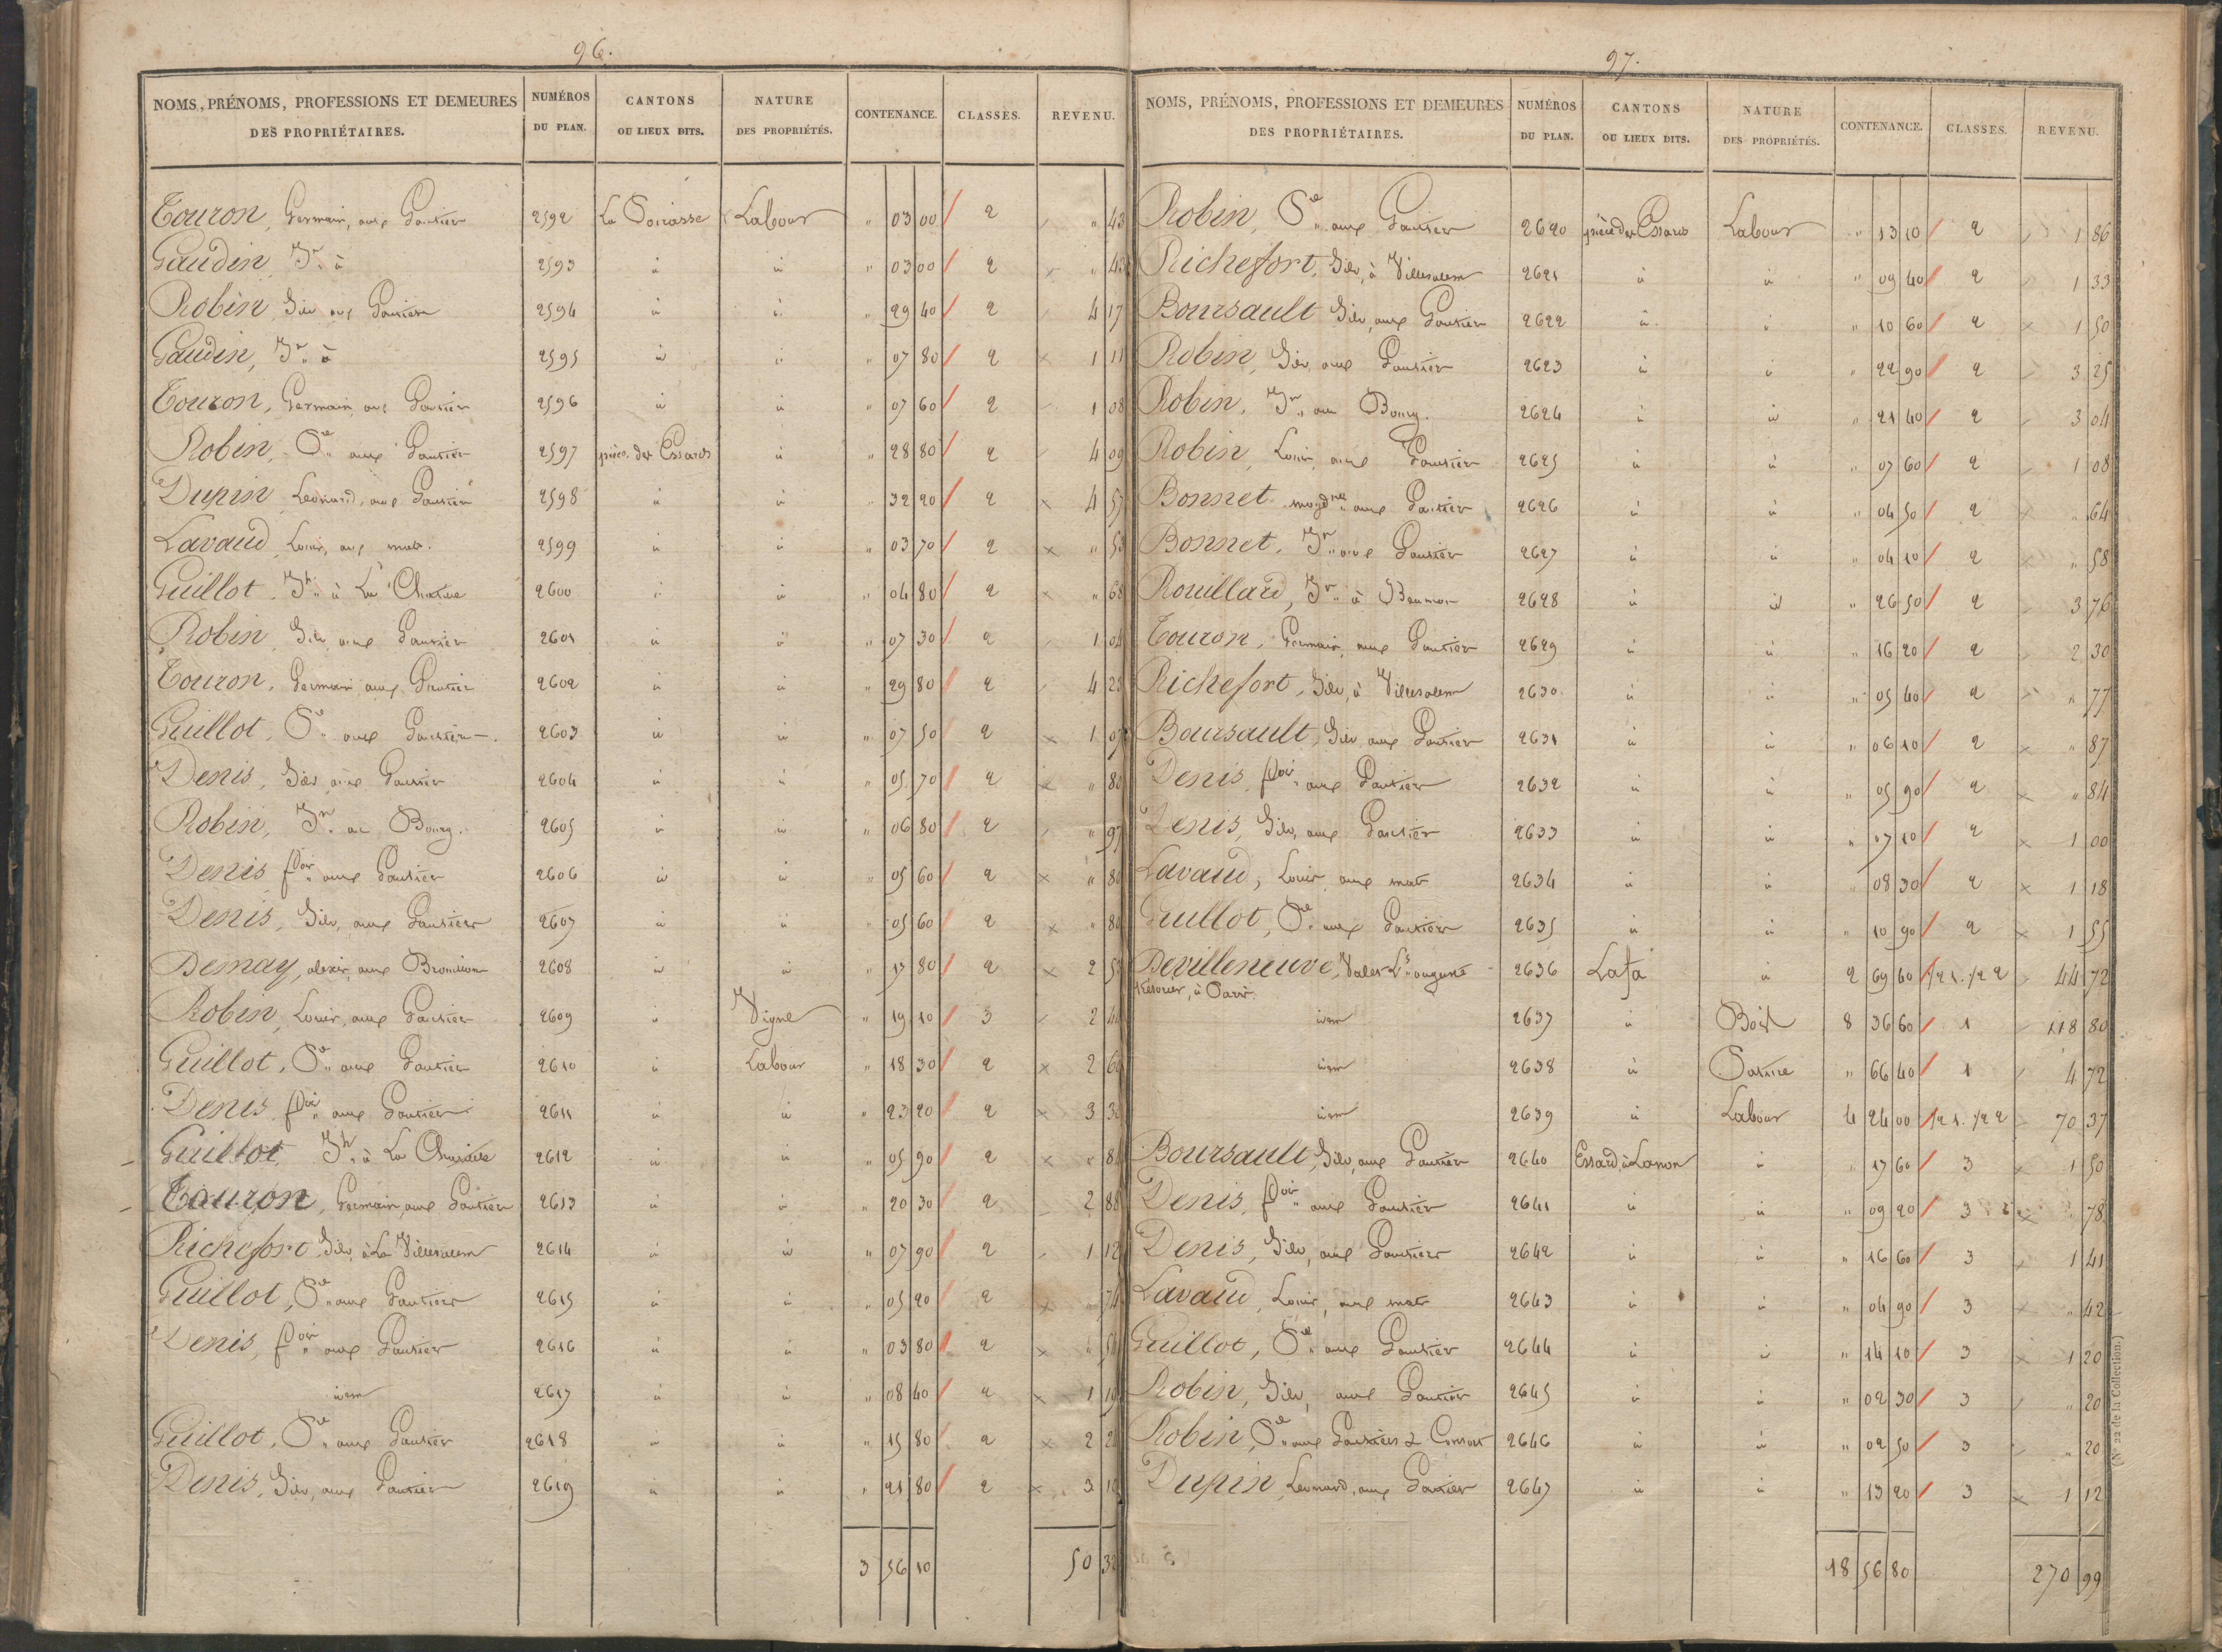 96.
NOMS, PRÉNOMS, PROFESSIONS ET DEMEURES DES PROPRIÉTAIRES. NUMÉROS DU PLAN. CANTONS OU LIEUX DITS. NATURE DES PROPRIÉTÉS. CONTENANCE. CLASSES. REVENU.
Touron, Germain, aux Gautier 2592 La Poirasse Labour " 03 00 2 " 43
Gaudin, Jn. à 2593 id id " 03 00 2 " 43
Robin, Silv aux Gautier 2594 id id " 29 40 2 4 17
Gaudin, Jn. à 2595 id id " 07 80 2 1 11
Touron, Germain, aux Gautier 2596 id id " 07 60 2 1 08
Robin, Pre aux Gautier 2597 pièce des Essards id " 28 80 2 4 09
Dupin Leonard, aux Gautier 2598 id id " 32 20 2 4 57
Lavaud Louis, aux mats 2599 id id " 03 70 2 " 53
Guillot, Jh. à La Chatre 2600 id id " 04 80 2 " 68
Robin, Silv, aux Gautier 2601 id id " 07 30 2 1 04
Touron, Germain aux Gautier 2602 id id " 29 80 2 4 23
Guillot, Pre aux Gautier 2603 id id " 07 50 2 1 07
Denis, Silv, aux Gautier 2604 id id " 05 70 2 " 80
Robin, Jn. au Bourg. 2605 id id " 06 80 2 " 97
Denis fois aux Gautier 2606 id id " 05 60 2 " 80
Denis, Silv, aux Gautier 2607 id id " 05 60 2 " 80
Demay, alexis, aux 2608 id id " 17 80 2 2 53
Robin, Louis, aux Gautier 2609 id Vigne " 19 10 3 2 40
Guillot, Pre aux Gautier 2610 id Labour " 18 30 2 2 60
Denis fois aux Gautier 2611 id id " 23 20 2 3 30
Guillot, Jh. à La Chatre 2612 id id " 05 90 2 " 84
Touron, Germain, aux Gautier 2613 id id " 20 30 2 2 88
Richefort Silv, à La Villesalem 2614 id id " 07 90 2 1 12
Guillot, Pre aux Gautier 2615 id id " 05 20 2 " 74
Denis, fois aux Gautier 2616 id id " 03 80 2 " 54
idem 2617 id id " 08 40 2 1 19
Guillot, Pre aux Gautier 2618 id id " 15 80 2 2 24
Denis, Silv, aux Gautier 2619 id id " 21 80 2 3 10
3 56 10 50 32
97.
NOMS, PRÉNOMS, PROFESSIONS ET DEMEURES DES PROPRIÉTAIRES. NUMÉROS DU PLAN. CANTONS OU LIEUX DITS. NATURE DES PROPRIÉTÉS. CONTENANCE. CLASSES. REVENU.
Robin, Pre aux Gautier 2620 pièce des Essards Labour " 13 10 2 1 86
Richefort, Silv, à Villesalem 2621 id id " 09 40 2 1 33
Boursault Silv, aux Gautier 2622 id id " 10 60 2 1 50
Robin, Silv, aux Gautier 2623 id id " 22 90 2 3 25
Robin, Jn. au Bourg. 2624 id id " 21 40 2 3 04
Robin, Louis, aux Gautier 2625 id id " 07 60 2 1 08
Bonnet aux Gautier 2626 id id " 04 50 2 " 64
Bonnet, Jn. aux Gautier 2627 id id " 04 10 2 " 58
Rouillard, Jn. à 2628 id id " 26 50 2 3 76
Touron, Germain, aux Gautier 2629 id id " 16 20 2 2 30
Richefort, Silv, à Villesalem 2630 id id " 05 40 2 " 77
Boursault, Silv, aux Gautier 2631 id id " 06 10 2 " 87
Denis, fois aux Gautier 2632 id id " 05 90 2 " 84
Denis, Silv, aux Gautier 2633 id id " 07 10 2 1 00
Lavaud, Louis, aux mats 2634 id id " 08 30 2 1 18
Guillot, Pre aux Gautier 2635 id id " 10 90 2 1 55
Devilleneuve, Valer Ls. auguste 2636 Lafa id 2 69 60 1/2 1. 1/2 2 44 72
Trésorier, à Paris.
idem 2637 id Bois 8 36 60 1 118 80
idem 2638 id Pature " 66 40 1 4 72
idem 2639 id Labour 4 24 00 1/2 1. 1/2 2 70 37
Boursault, Silv, aux Gautier 2640 Essard à Lanon id " 17 60 3 1 50
Denis, fois aux Gautier 2641 id id " 09 20 3 " 78
Denis, Silv, aux Gautier 2642 id id " 16 60 3 1 41
Lavaud, Louis, aux mats 2643 id id " 04 90 3 " 42
Guillot, Pre aux Gautier 2644 id id " 14 10 3 1 20
Robin, Silv, aux Gautier 2645 id id " 02 30 3 " 20
Robin, Pre aux Gautier & Consort 2646 id id " 02 50 3 " 20
Dupin, Leonard, aux Gautier 2647 id id " 13 20 3 1 12
18 56 80 270 99
(N° 22 de la Collection.)